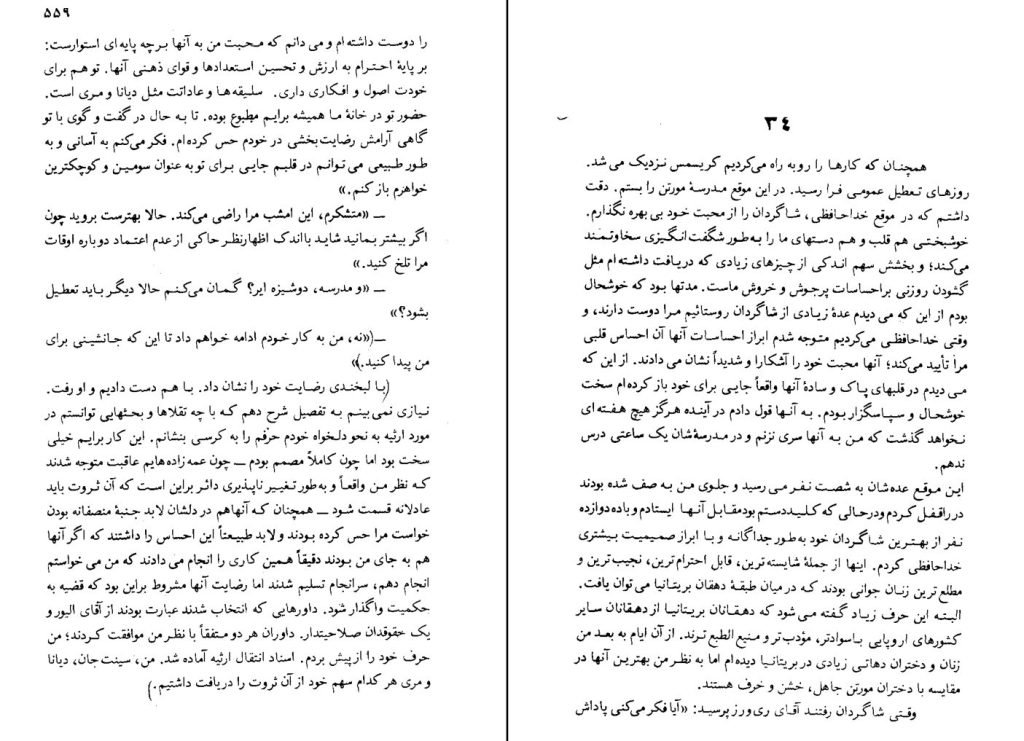 ۵۵۹
را دوست داشته‌ام و می‌دانم که محبت من به آنها برچه پایه‌ای استوارست:
بر پایهٔ احترام به ارزش و تحسین استعدادها و قوای ذهنی آنها. تو هم برای
خودت اصول و افکاری داری. سلیقه‌ها و عاداتت مثل دیانا و مری است.
حضور تو در خانهٔ ما همیشه برایم مطبوع بوده. تا به حال در گفت و گوی با تو
گاهی آرامش رضایت‌بخشی در خودم حس کرده‌ام. فکر می‌کنم به آسانی و به
طور طبیعی می‌توانم در قلبم جایی برای تو به عنوان سومین و کوچکترین
خواهرم باز کنم.»
ــ «متشکرم، این امشب مرا راضی می‌کند. حالا بهترست بروید چون
اگر بیشتر بمانید شاید بااندک اظهارنظر حاکی از عدم اعتماد دوباره اوقات
مرا تلخ کنید.»
ــ «و مدرسه، دوشیزه ایر؟ گمان می‌کنم حالا دیگر باید تعطیل
بشود؟»
ــ «نه، من به کار خودم ادامه خواهم داد تا این که جانشینی برای
من پیدا کنید.»
با لبخندی رضایت خود را نشان داد. با هم دست دادیم و او رفت.
نیازی نمی‌بینم به تفصیل شرح دهم که با چه تقلاها و بحثهایی توانستم در
مورد ارثیه به نحو دلخواه خودم حرفم را به کرسی بنشانم. این کار برایم خیلی
سخت بود اما چون کاملاً مصمم بودم ــ چون عمه‌زاده‌هایم عاقبت متوجه شدند
که نظر من واقعاً و به‌طور تغییر ناپذیری دائر براین است که آن ثروت باید
عادلانه قسمت شود ــ همچنان که آنهاهم در دلشان لابد جنبهٔ منصفانه بودن
خواست مرا حس کرده بودند و لابد طبیعتاً این احساس را داشتند که اگر آنها
هم به جای من بودند دقیقاً همین کاری را انجام می‌دادند که من می‌خواستم
انجام دهم، سرانجام تسلیم شدند اما رضایت آنها مشروط براین بود که قضیه به
حکمیت واگذار شود. داورهایی که انتخاب شدند عبارت بودند از آقای الیور و
یک حقوقدان صلاحیتدار. داوران هر دو متفقاً با نظر من موافقت کردند؛ من
حرف خود را از پیش بردم. اسناد انتقال ارثیه آماده شد. من، سینت جان، دیانا
و مری هر کدام سهم خود از آن ثروت را دریافت داشتیم.
۳۴
همچنان که کارها را روبه راه می‌کردیم کریسمس نزدیک می‌شد.
روزهای تعطیل عمومی فرا رسید. در این موقع مدرسهٔ مورتن را بستم. دقت
داشتم که در موقع خداحافظی، شاگردان را از محبت خود بی بهره نگذارم.
خوشبختی هم قلب و هم دستهای ما را به‌طور شگفت‌انگیزی سخاوتمند
می‌کند؛ و بخشش سهم اندکی از چیزهای زیادی که دریافت داشته‌ام مثل
گشودن روزنی براحساسات پرجوش و خروش ماست. مدتها بود که خوشحال
بودم از این که می‌دیدم عدهٔ زیادی از شاگردان روستائیم مرا دوست دارند، و
وقتی خداحافظی می‌کردیم متوجه شدم ابراز احساسات آنها آن احساس قلبی
مرا تأیید می‌کند؛ آنها محبت خود را آشکارا و شدیداً نشان می‌دادند. از این که
می‌دیدم در قلبهای پاک و سادهٔ آنها واقعاً جایی برای خود باز کرده‌ام سخت
خوشحال و سپاسگزار بودم. به آنها قول دادم در آینده هرگز هیچ هفته‌ای
نخواهد گذشت که من به آنها سری نزنم و در مدرسه‌شان یک ساعتی درس
ندهم.
این موقع عده‌شان به شصت نفر می‌رسید و جلوی من به صف شده بودند
در راقفل کردم ودرحالی که کلید دستم بودمقابل آنها ایستادم و باده دوازده
نفر از بهترین شاگردان خود به‌طور جداگانه و با ابراز صمیمیت بیشتری
خداحافظی کردم. اینها از جملهٔ شایسته‌ترین، قابل احترام‌ترین، نجیب‌ترین و
مطلع‌ترین زنان جوانی بودند که در میان طبقهٔ دهقان بریتانیا می‌توان یافت.
البته این حرف زیاد گفته می‌شود که دهقانان بریتانیا از دهقانان سایر
کشورهای اروپایی باسوادتر، مؤدب‌تر و منیع الطبع ترند. از آن ایام به بعد من
زنان و دختران دهاتی زیادی در بریتانیا دیده‌ام اما به نظر من بهترین آنها در
مقایسه با دختران مورتن جاهل، خشن و خرف هستند.
وقتی شاگردان رفتند آقای ری‌ورز پرسید: «آیا فکر می‌کنی پاداش